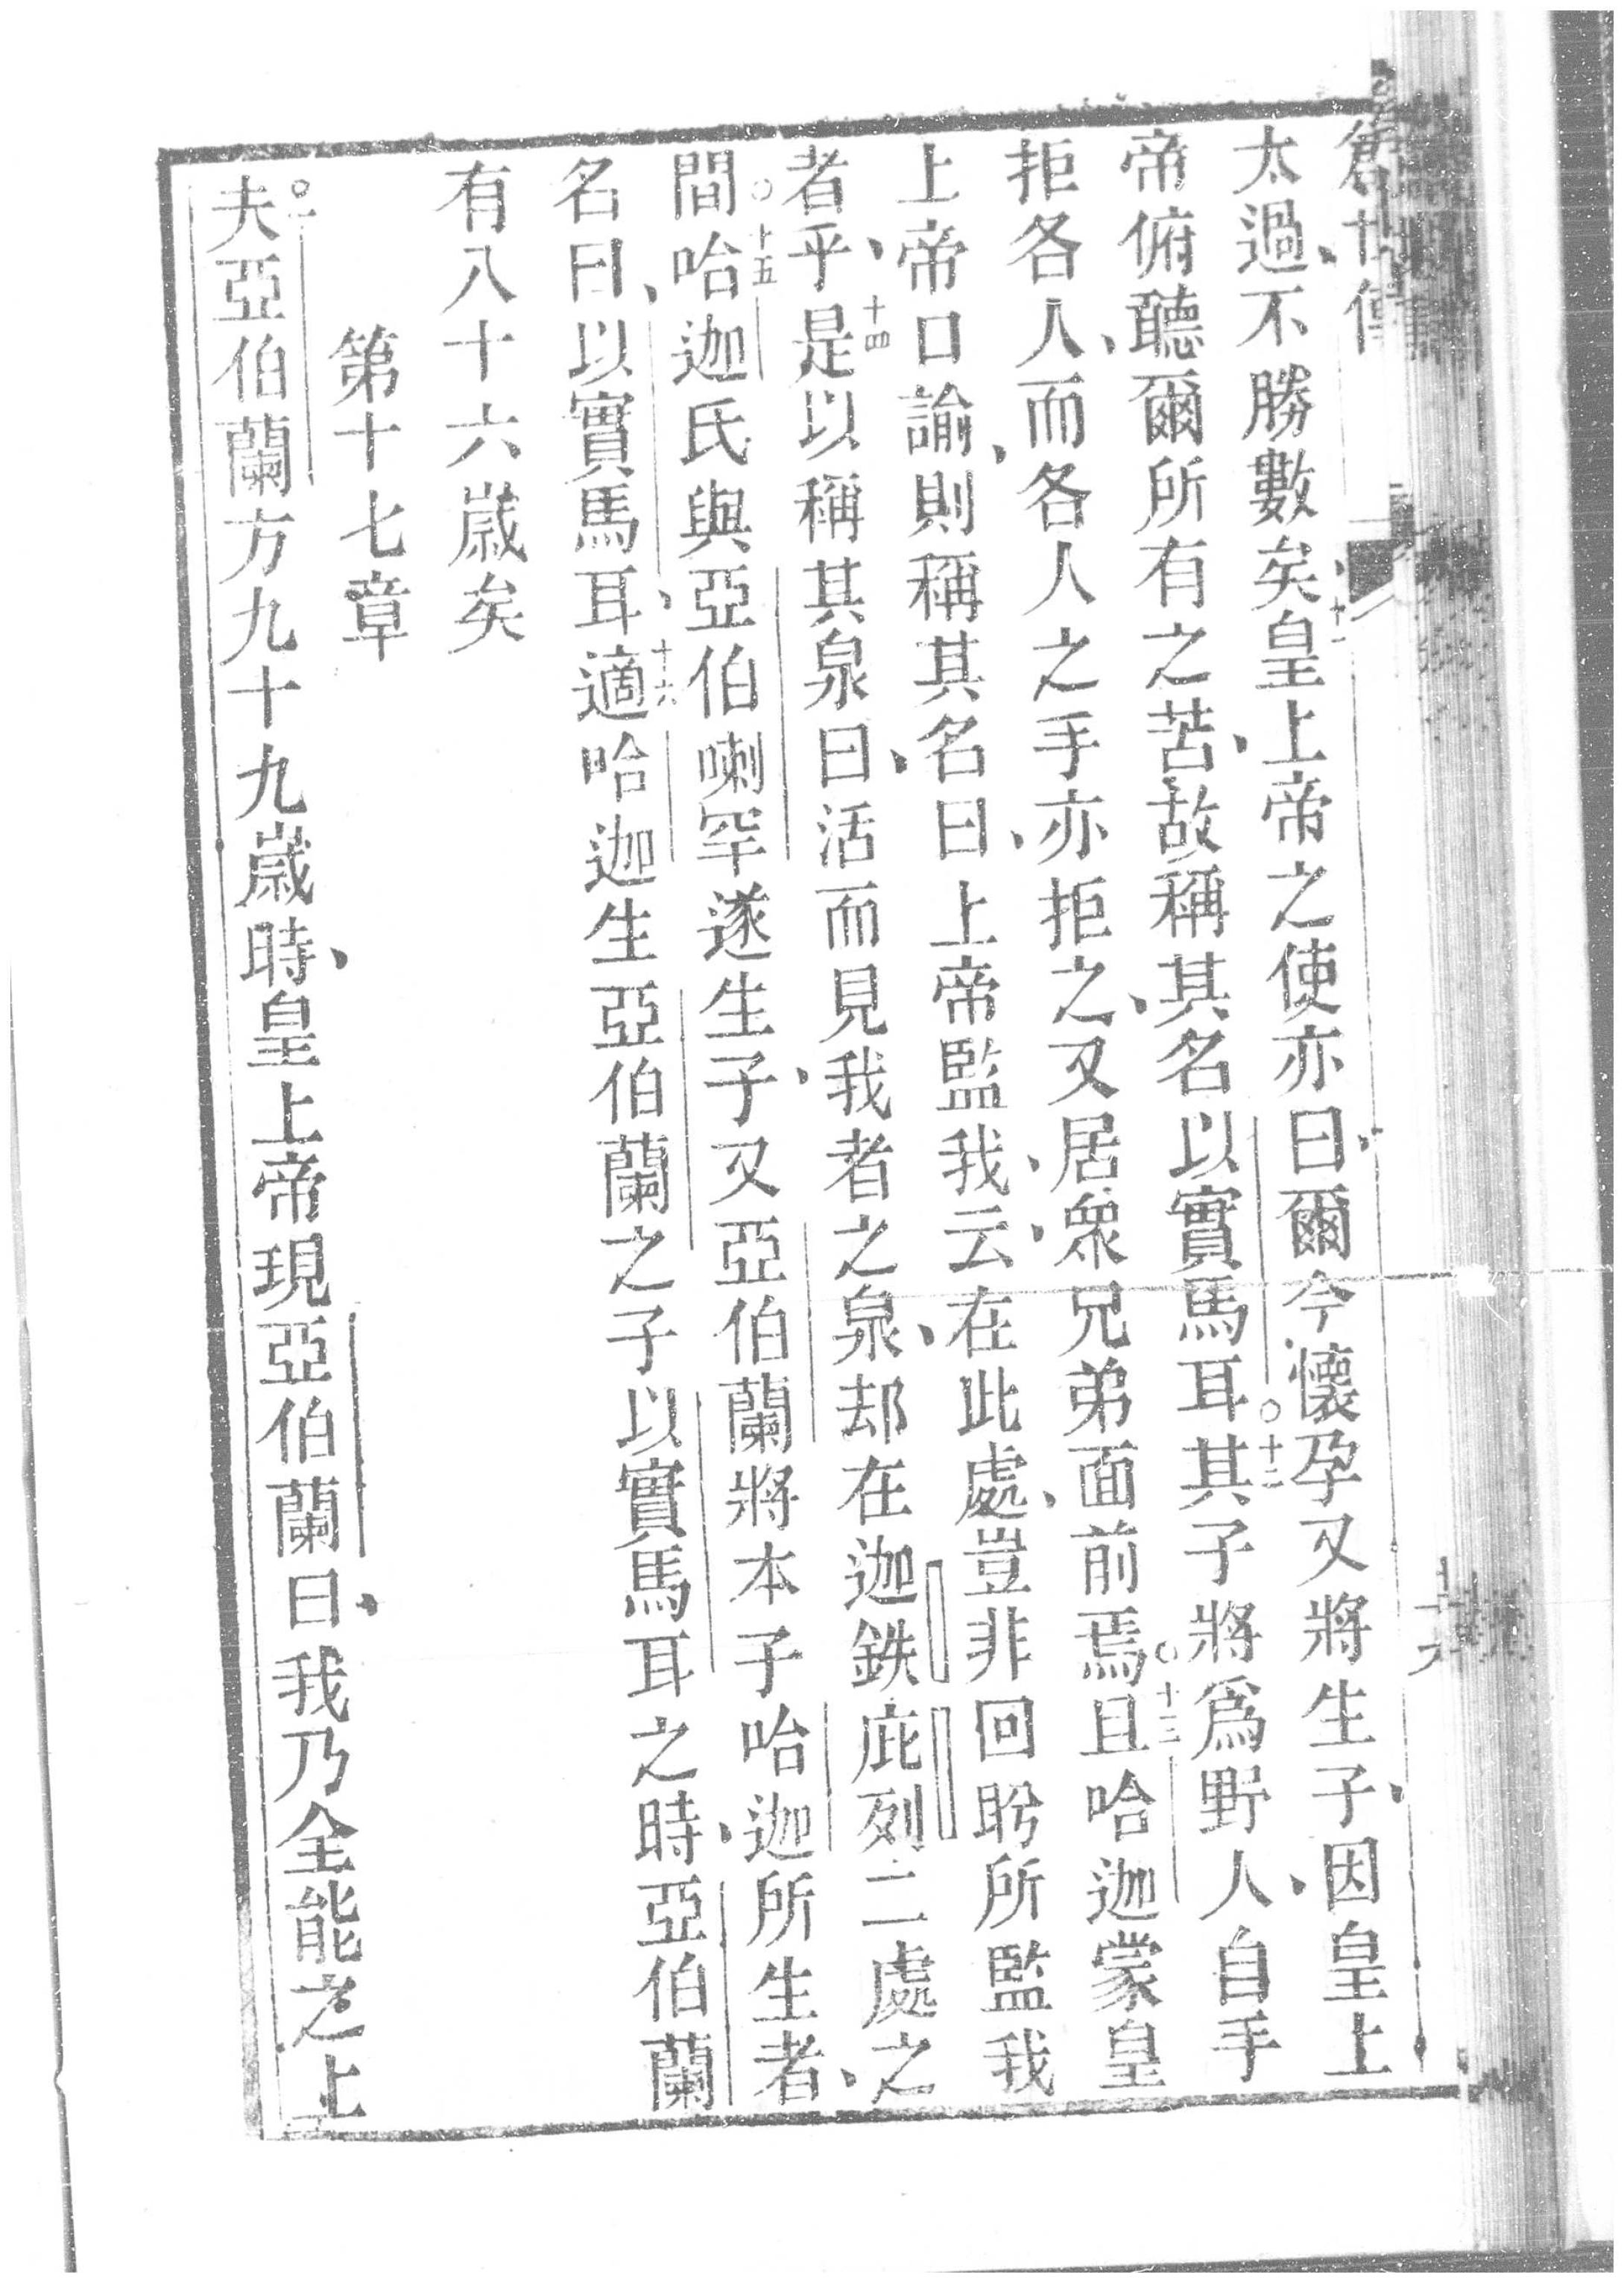 創世傳
太過、不勝數矣十一皇上帝之使亦曰、爾今懷孕又將生子、因皇上
帝俯聽爾所有之苦、故稱其名以實馬耳○十二其子將爲野人、自手
拒各人、而各人之手亦拒之、又居衆兄弟面前焉○十三且哈迦蒙皇
上帝口諭、則稱其名曰、上帝監我、云、在此處、豈非回盻所監我
者乎、十四是以稱其泉曰、活而見我者之泉、却在迦鉄庇列二處之
間○十五哈迦氏與亞伯喇罕遂生子、又亞伯蘭將本子哈迦所生者、
名曰、以實馬耳、十六適哈迦生亞伯蘭之子以實馬耳之時、亞伯蘭
有八十六歲矣
第十七章
○一夫亞伯蘭方九十九歲時、皇上帝現亞伯蘭曰、我乃全能之上